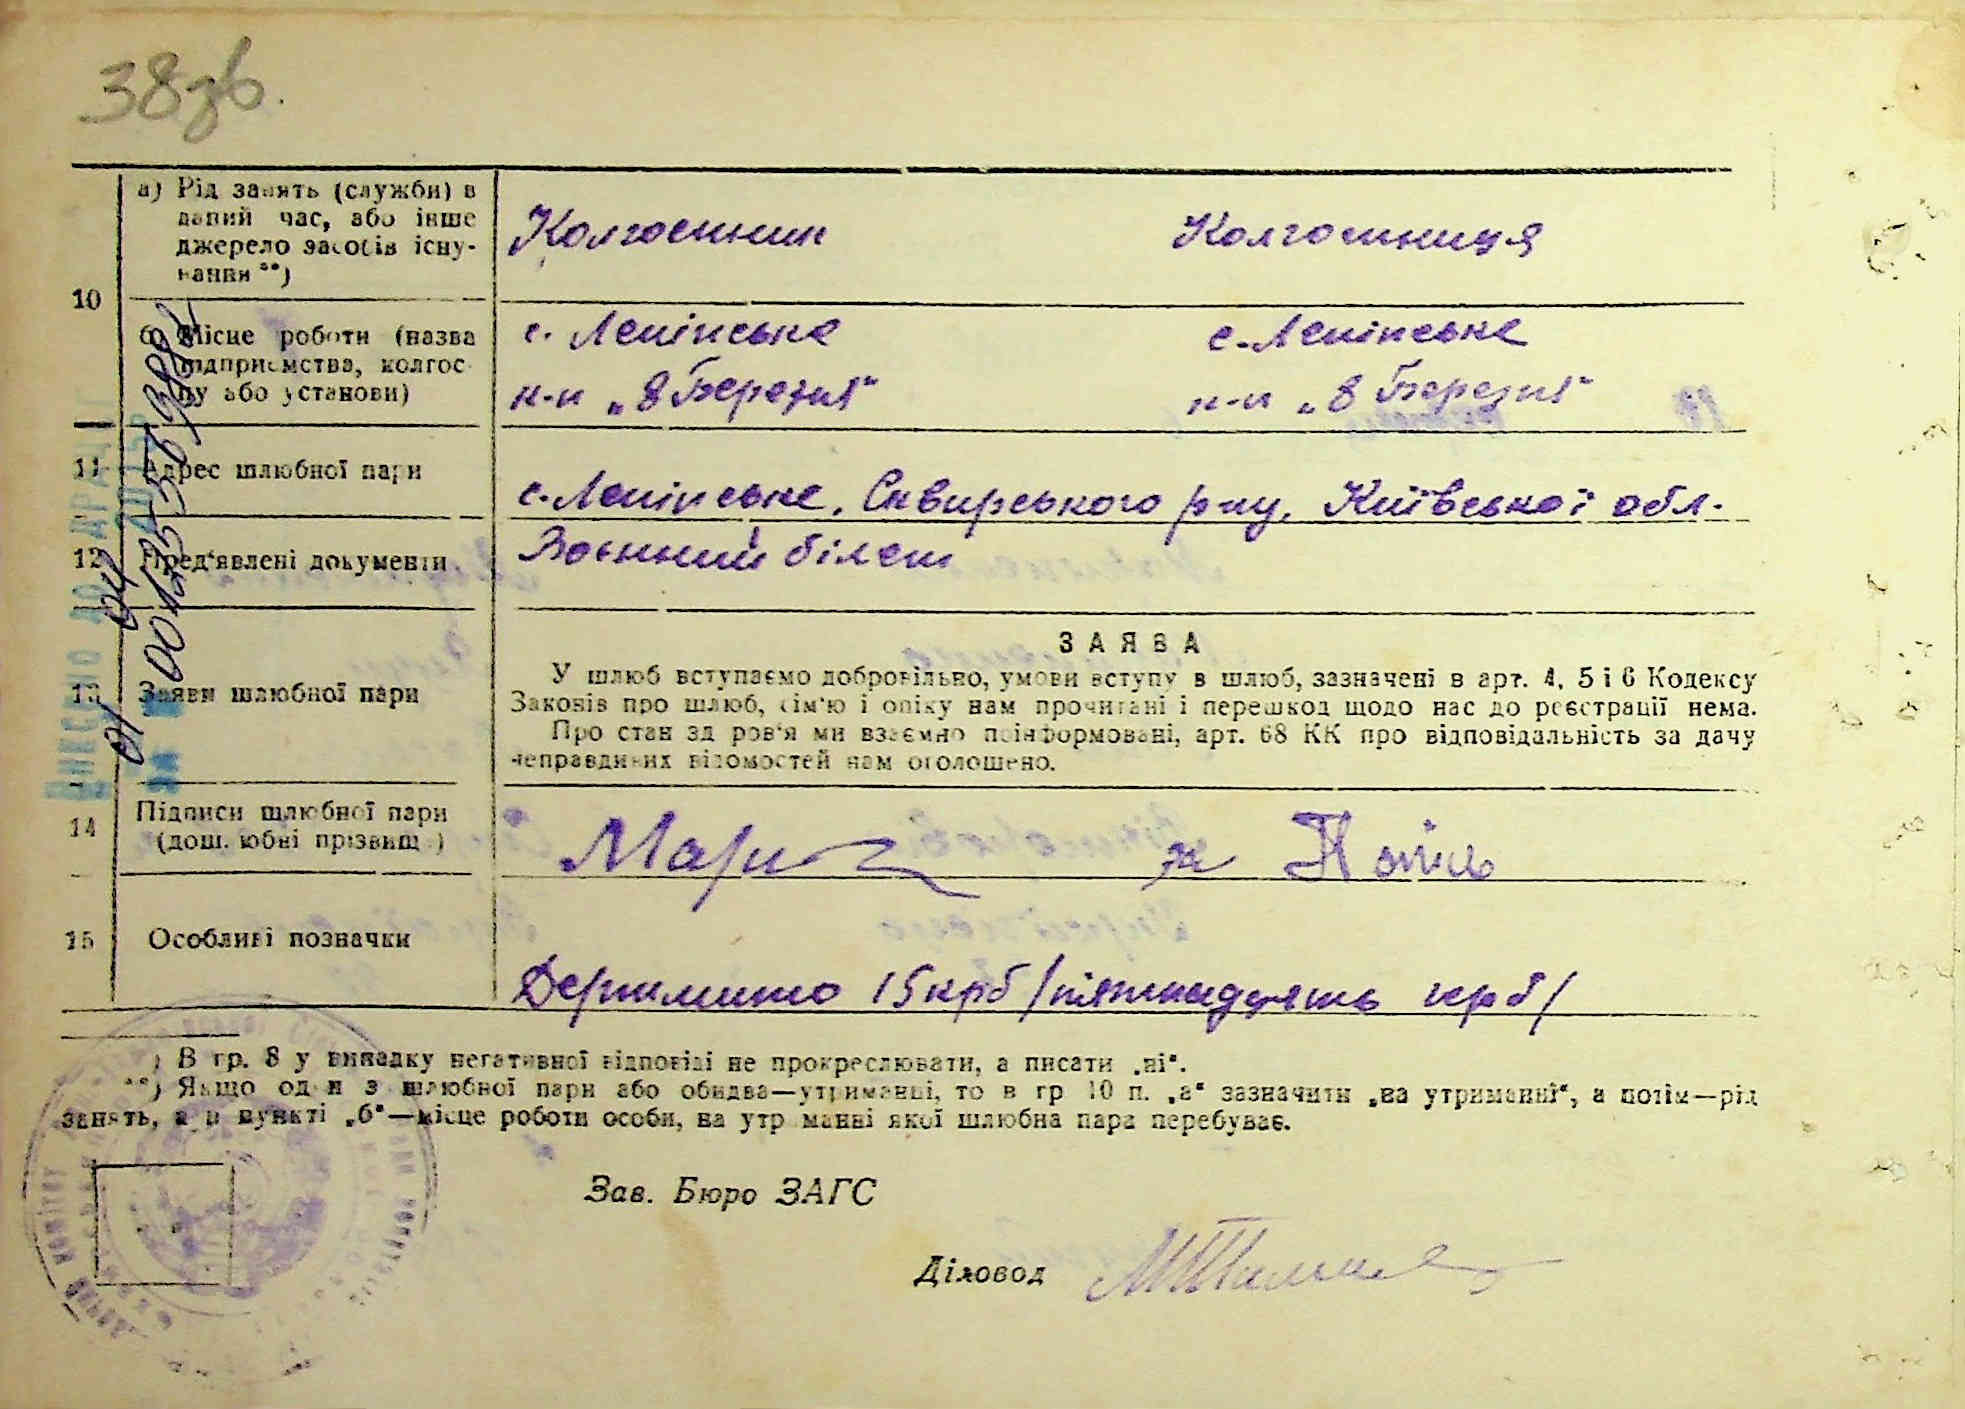 38зв.
10
а) Рід занять (служби) в
даний час, або інше
джерело засобів існу-
вання **)
Колгоспник Колгоспниця
б) Місце роботи (назва
підприємства, колгос-
пу або установи)
с. Ленінське с. Ленінське
к-п „8 Березня" к-п „8 Березня"
11 Адрес шлюбної пари
с. Ленінське, Сквирського р-ну, Київської обл.
12 Пред'явлені документи
Воєнний білет
13 Заяви шлюбної пари
ЗАЯВА
У шлюб вступаємо добровільно, умови вступу в шлюб, зазначені в арт. 4, 5 і 6 Кодексу
Законів про шлюб, сім'ю і опіку нам прочитані і перешкод щодо нас до реєстрації нема.
Про стан здоров'я ми взаємно поінформовані, арт. 68 КК про відповідальність за дачу
неправдивих відомостей нам оголошено.
14 Підписи шлюбної пари
(дошлюбні прізвища)
15 Особливі позначки
Держмито 15 крб /пятнадцять крб/
*) В гр. 8 у випадку негативної відповіді не прокреслювати, а писати „ні".
**) Якщо один з шлюбної пари або обидва—утриманці, то в гр 10 п. „а" зазначити „на утриманні", а потім—рід
занять, а в пункті „б"—місце роботи особи, на утриманні якої шлюбна пара перебуває.
Зав. Бюро ЗАГС
Діловод
ВНЕСЕНО ДО ДРАЦСГ
ЗА №
00135350938